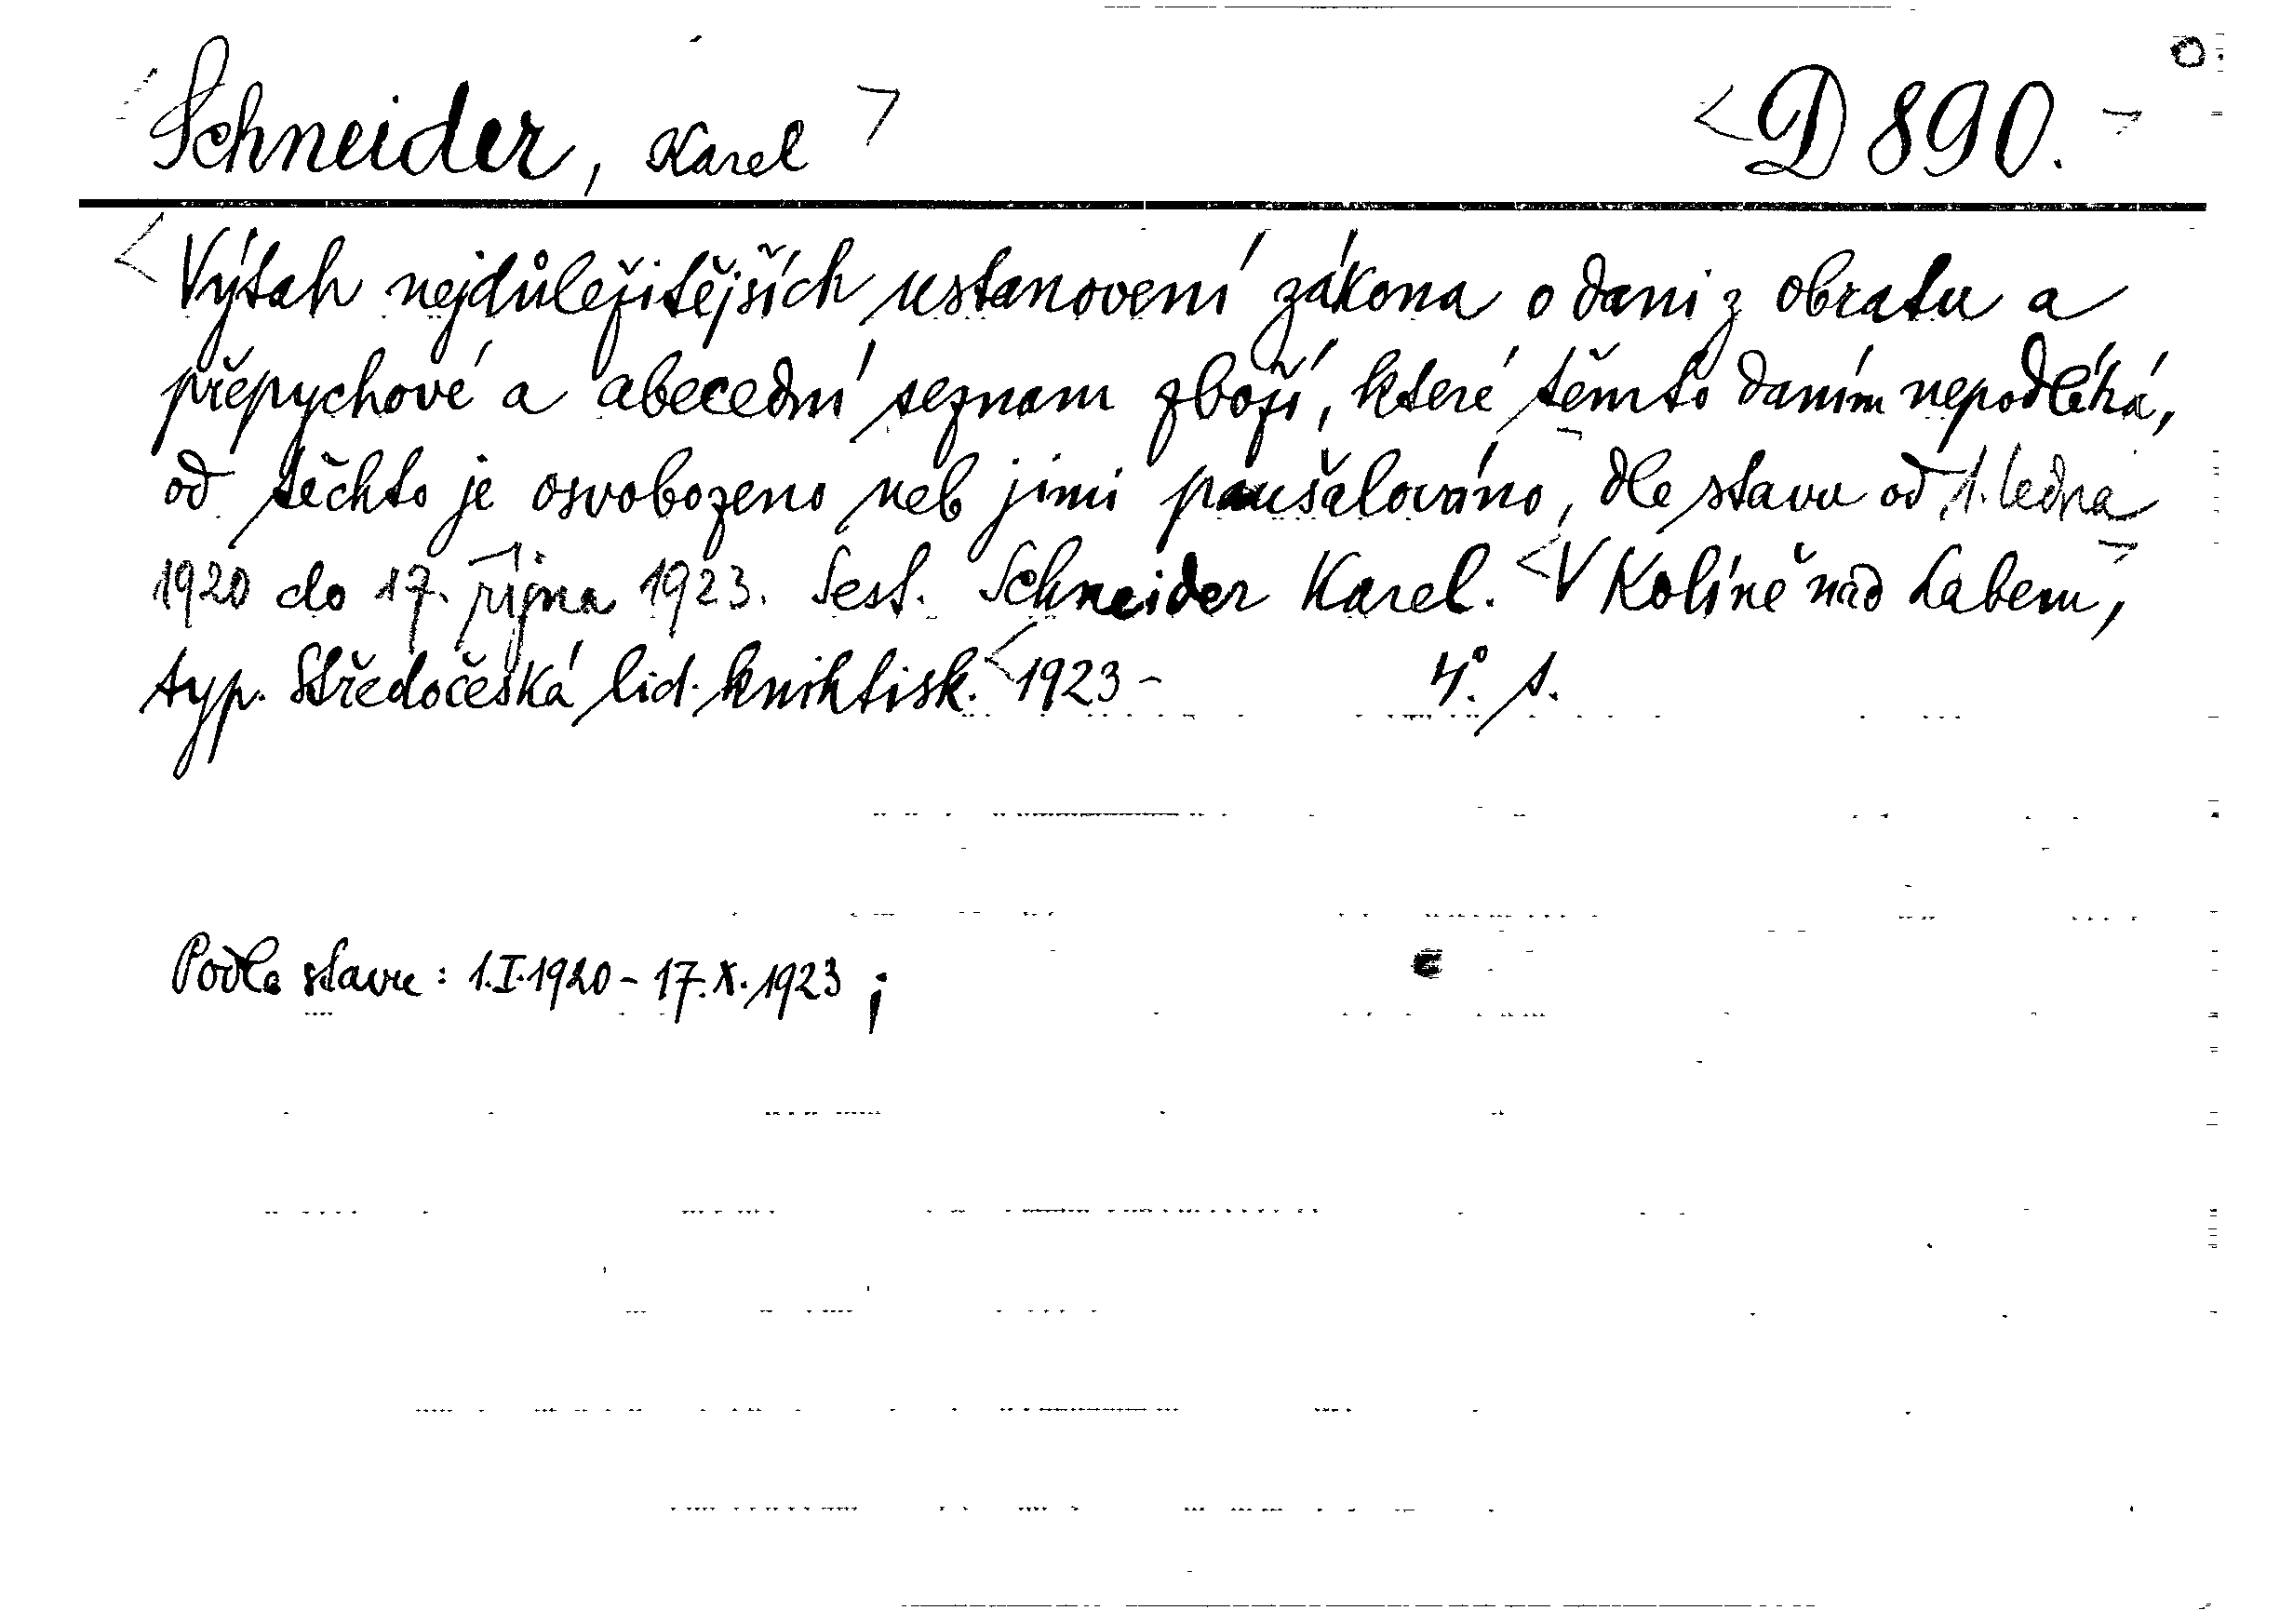 Schneider, Karel D 890.
Výtah nejdůležitějších ustanovení zákona o dani z obratu a
přepychové a abecední seznam zboží, které těmto daním nepodléhá,
od těchto je osvobozeno neb jimi paušalováno, dle stavu od 1. ledna
1920 do 17. října 1923. Sest. Schneider Karel. V Kolíně nad Labem,
typ. Středočeská lid. knihtisk. 1923 - 4°. s.
Podle stavu: 1.I.1920 - 17.X.1923 ;